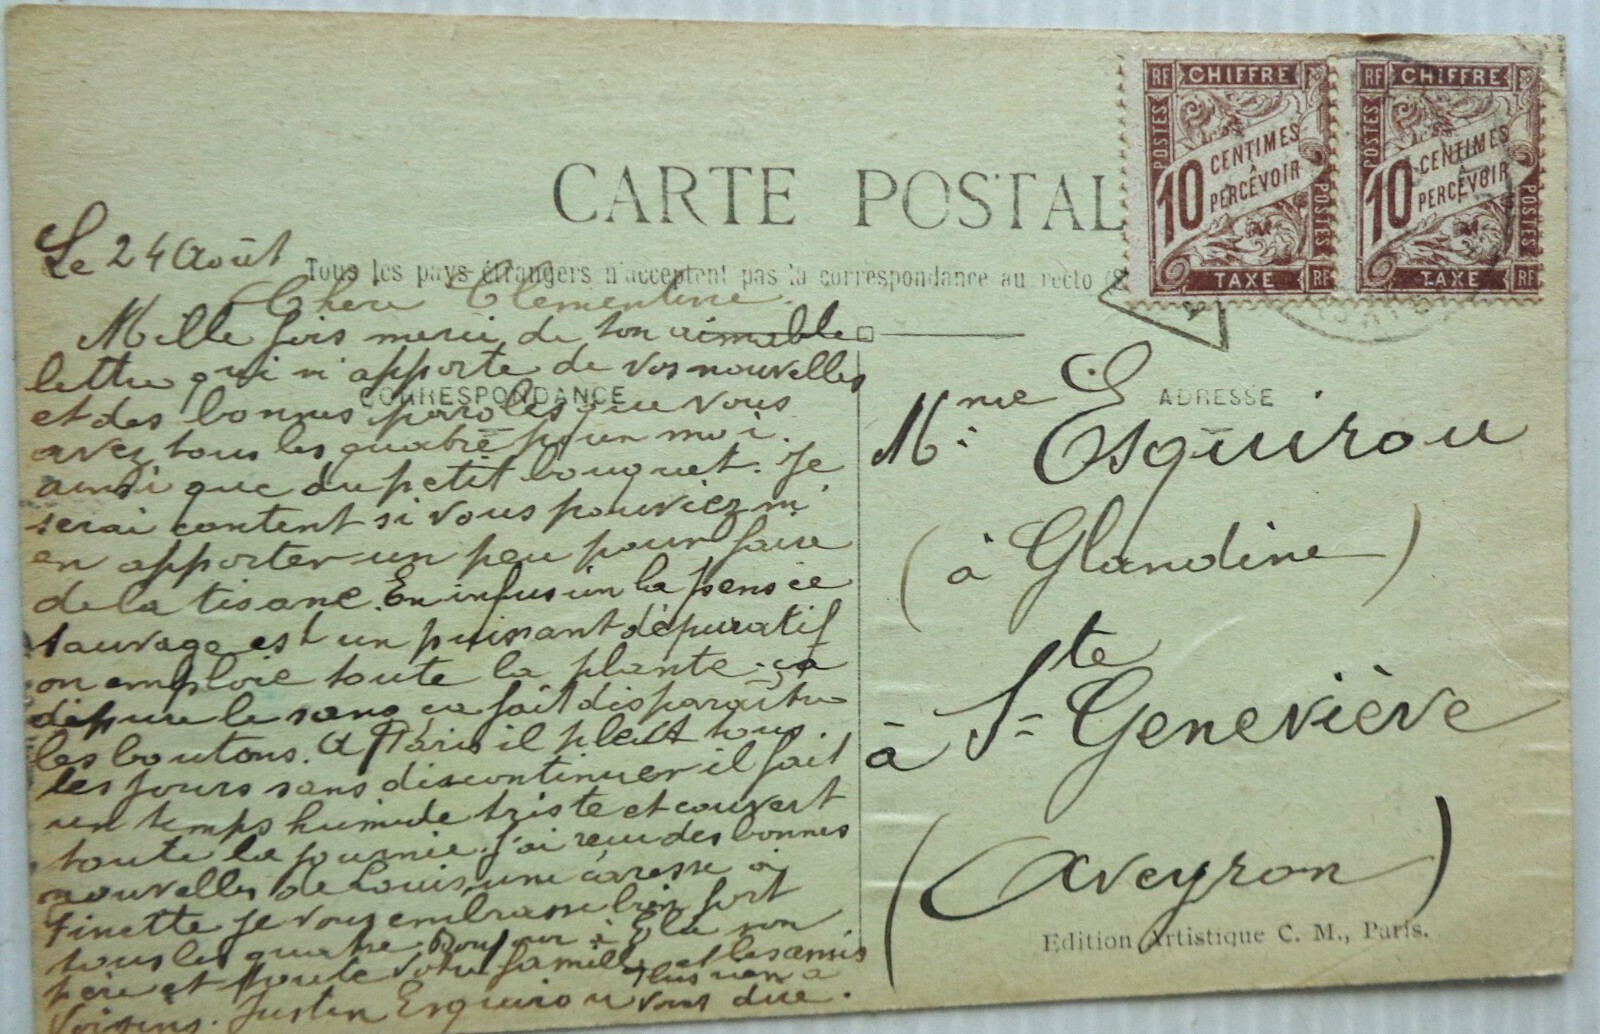 CARTE POSTAL
Tous les pays étrangers n'acceptent pas la correspondance au recto
CORRESPONDANCE
Le 24 Août
Chère Clementine.
Mille fois merci de ton aimable
lettre qui m'apporte de vos nouvelles
et des bonnes paroles que vous
avez tous les quatre pour moi.
ainsi que du petit bouquet. Je
serai content si vous pouviez m'
en apporter un peu pour faire
de la tisane. En infusion la pensée
sauvage est un puissant dépuratif
on emploie toute la plante ça
dépure le sang ça fait disparaître
les boutons. A Paris il pleut tous
les jours sans discontinuer il fait
un temps humide triste et couvert
toute la journée. J'ai reçu des bonnes
nouvelles de Louis une caresse à
Finette je vous embrasse bien fort
tous les quatre. Bonjour à mon
père et toute votre famille et les amis
voisins. Justin Esquirou Plus rien à
vous dire.
RF CHIFFRE
POSTES
10 CENTIMES
À
PERCEVOIR
POSTES
TAXE RF
RF CHIFFRE
POSTES
10 CENTIMES
À
PERCEVOIR
POSTES
TAXE RF
ADRESSE
Mme E
Esquirou
(à Glandine)
à Ste Geneviève
(Aveyron)
Edition Artistique C. M., Paris.